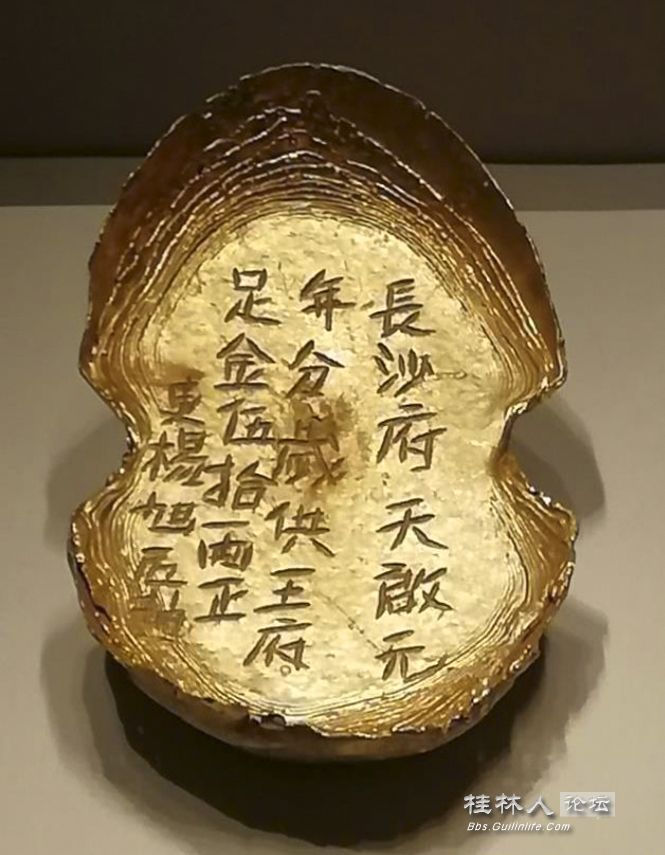 長沙府天啟元
年分歲供王府
足金伍拾兩正
吏楊旭
桂林人论坛
Bbs.Guilinlife.Com